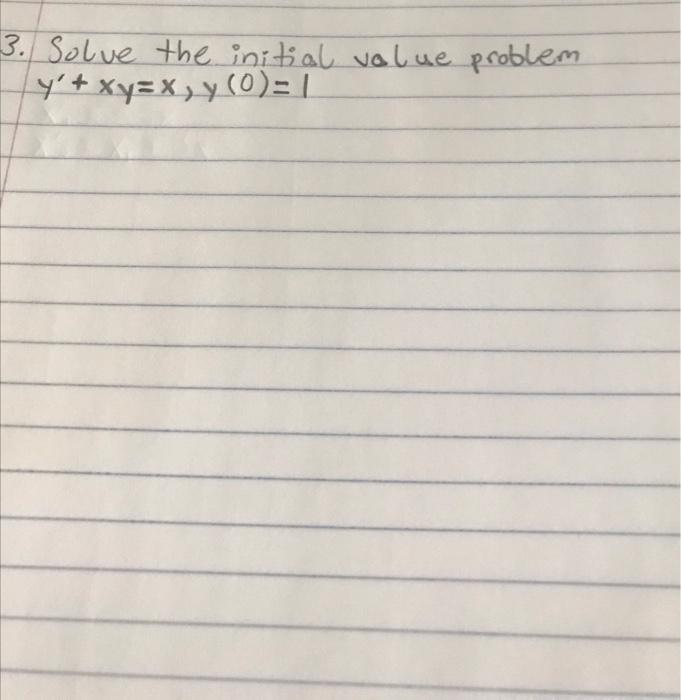 3. Solve the initial value problem
y' + xy = x, y(0) = 1